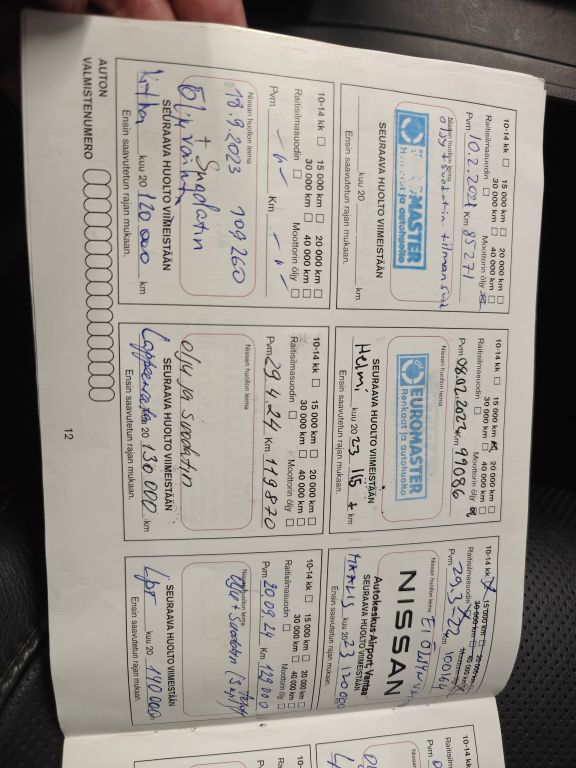 10-14 kk 15 000 km 20 000 km
Raitisilmasuodin 30 000 km 40 000 km
Moottorin öljy
Pvm 10.2.2021 Km 85271
Nissan huollon leima
öljy + suodatin + ilman
EUROMASTER
Renkaat ja autohuolto
SEURAAVA HUOLTO VIIMEISTÄÄN
kuu 20 km
Ensin saavutetun rajan mukaan.
10-14 kk 15 000 km 20 000 km
Raitisilmasuodin 30 000 km 40 000 km
Moottorin öljy
Pvm 08.02.2022 Km 99086
Nissan huollon leima
EUROMASTER
Renkaat ja autohuolto
SEURAAVA HUOLTO VIIMEISTÄÄN
Helmi kuu 20 23 115 t km
Ensin saavutetun rajan mukaan.
10-14 kk 15 000 km 20 000 km
Raitisilmasuodin 30 000 km 40 000 km
Pvm 29.3.22 Km 100164
Nissan huollon leima
NISSAN
Autokeskus Airport, Vantaa
SEURAAVA HUOLTO VIIMEISTÄÄN
MAALIS kuu 20 23 120000
Ensin saavutetun rajan mukaan.
10-14 kk 15 000 km 20 000 km
Raitisilmasuodin 30 000 km 40 000 km
Moottorin öljy
Pvm Km
Nissan huollon leima
18.9.2023 109260
+ Suodatin
Öljynvaihto
SEURAAVA HUOLTO VIIMEISTÄÄN
kuu 20 120 000 km
Ensin saavutetun rajan mukaan.
10-14 kk 15 000 km 20 000 km
Raitisilmasuodin 30 000 km 40 000 km
Moottorin öljy
Pvm 29.4.24 Km 119870
Nissan huollon leima
öljy ja suodatin
SEURAAVA HUOLTO VIIMEISTÄÄN
kuu 20 130 000 km
Ensin saavutetun rajan mukaan.
10-14 kk 15 000 km 20 000 km
Raitisilmasuodin 30 000 km 40 000 km
Moottorin öljy
Pvm 20.09.24 Km
Nissan huollon leima
Öljy + Suodatin
SEURAAVA HUOLTO VIIMEISTÄÄN
Lpr kuu 20 140 000 km
Ensin saavutetun rajan mukaan.
AUTON
VALMISTENUMERO
12
10-14 kk
Raitisilmasuodin
Pvm
Nissan huollon leima
10-14 kk